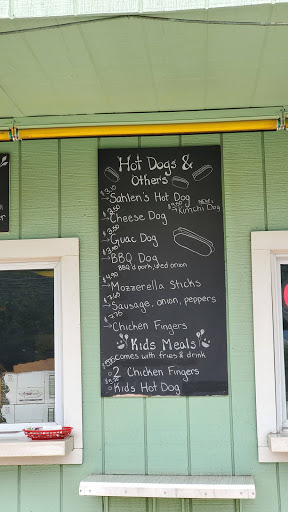 Hot Dogs &
Others
$3.00
→ Sahlen's Hot Dog
NEW!
$4.50
Kimchi Dog
$3.50
→ Cheese Dog
$3.50
→ Guac Dog
$3.50
→ BBQ Dog
BBQ'd pork, diced onion
$4.90
→ Mozzerella Sticks
$7.60
→ Sausage, onion, peppers
$7.75
→ Chicken Fingers
Kids Meals
comes with fries & drink
2 Chicken Fingers
Kids Hot Dog